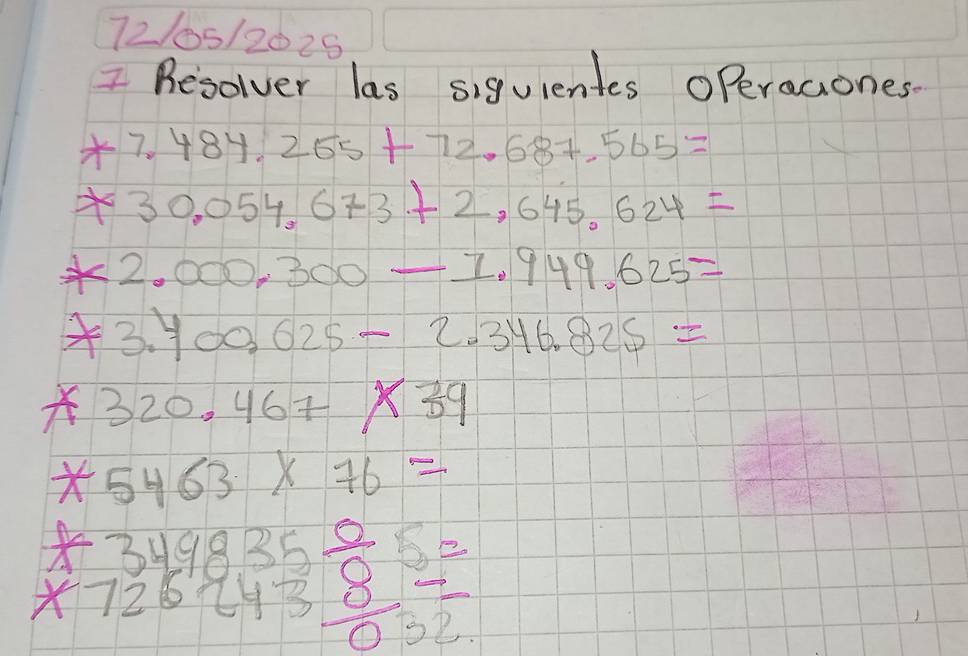 12/05/2025
I Resolver las siguientes operaciones.
* 7.484.265 + 12.687.565 =
* 30.054.673 + 2.645.624 =
* 2.000.300 - 1.949.625 =
* 3.400.625 - 2.346.825 =
* 320.467 x 39
* 5463 x 76 =
* 349835 ÷ 5 =
* 126243 ÷ 32 =